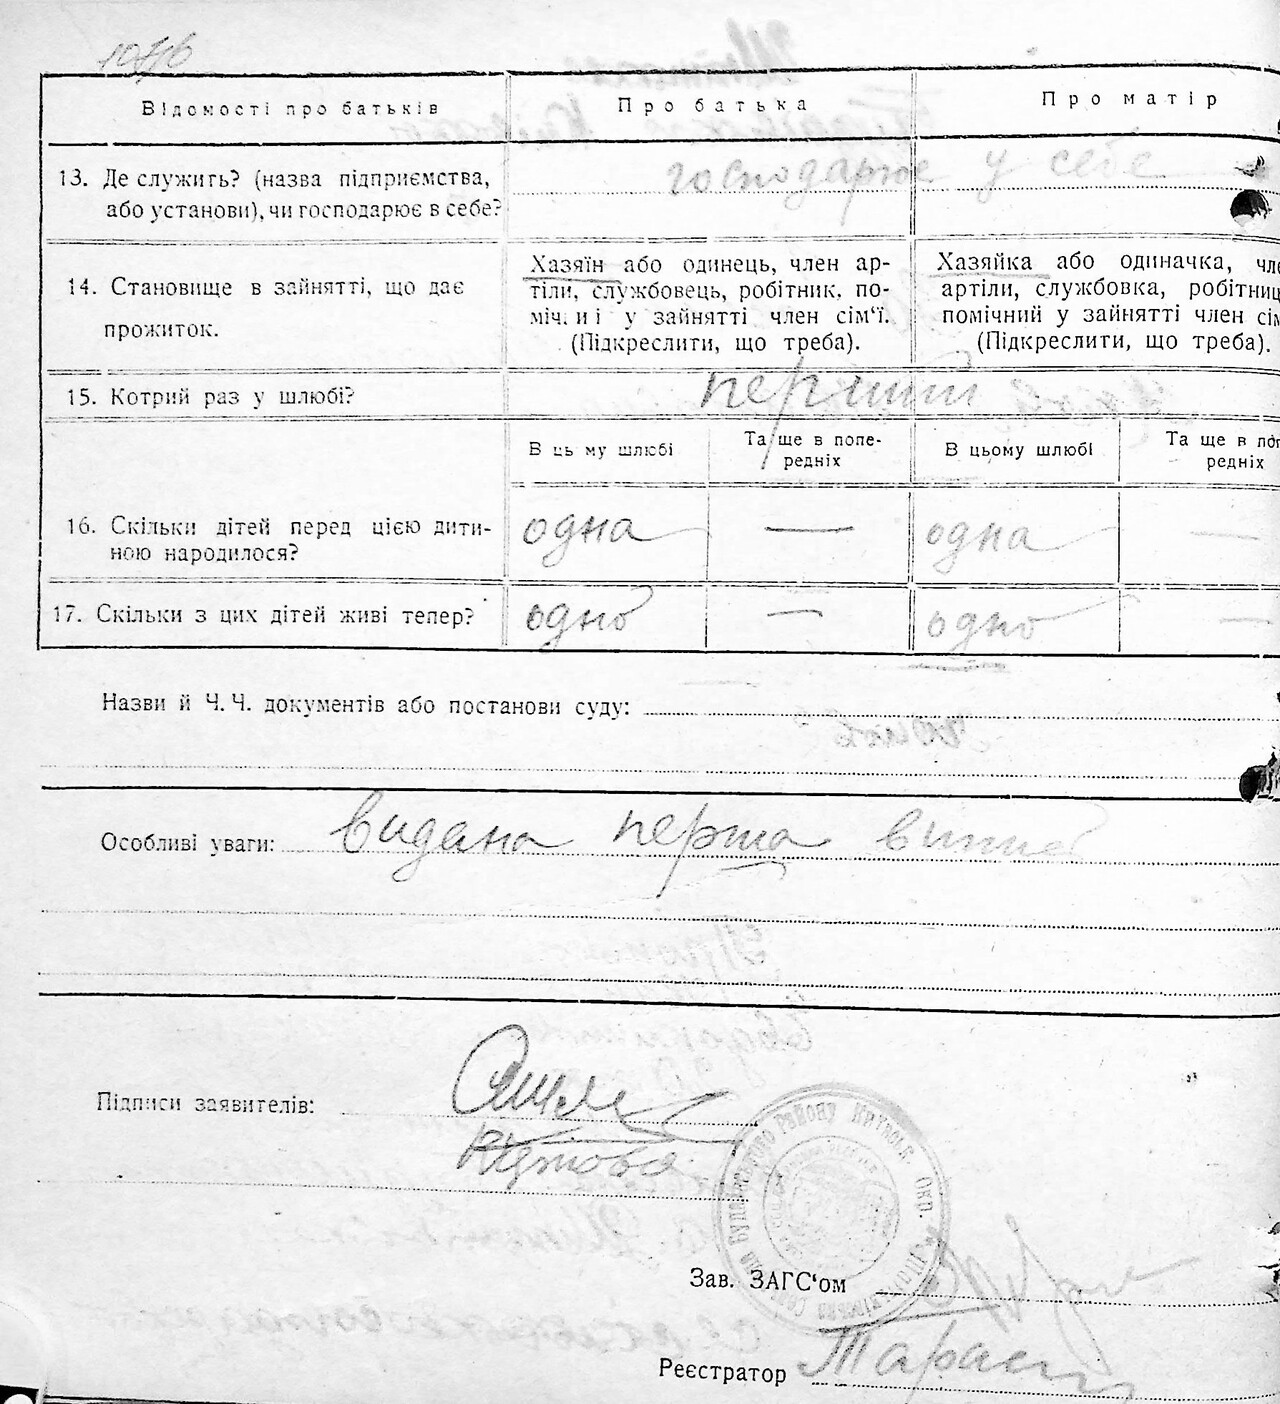 Відомості про батьків
Про батька
Про матір
13. Де служить? (назва підприємства,
або установи), чи господарює в себе?
господарює у себе
14. Становище в зайнятті, що дає
прожиток.
Хазяїн або одинець, член ар-
тіли, службовець, робітник, по-
міч. и і у зайнятті член сім'ї.
(Підкреслити, що треба).
Хазяйка або одиначка, чле
артіли, службовка, робітниц
помічний у зайнятті член сім
(Підкреслити, що треба).
15. Котрий раз у шлюбі?
перший
В ць му шлюбі
Та ще в попе-
редніх
В цьому шлюбі
Та ще в поп
редніх
16. Скільки дітей перед цією дити-
ною народилося?
одна — одна —
17. Скільки з цих дітей живі тепер?
одно — одно —
Назви й Ч. Ч. документів або постанови суду:
Особливі уваги: видана перша
Підписи заявителів:
Зав. ЗАГС'ом
Реєстратор